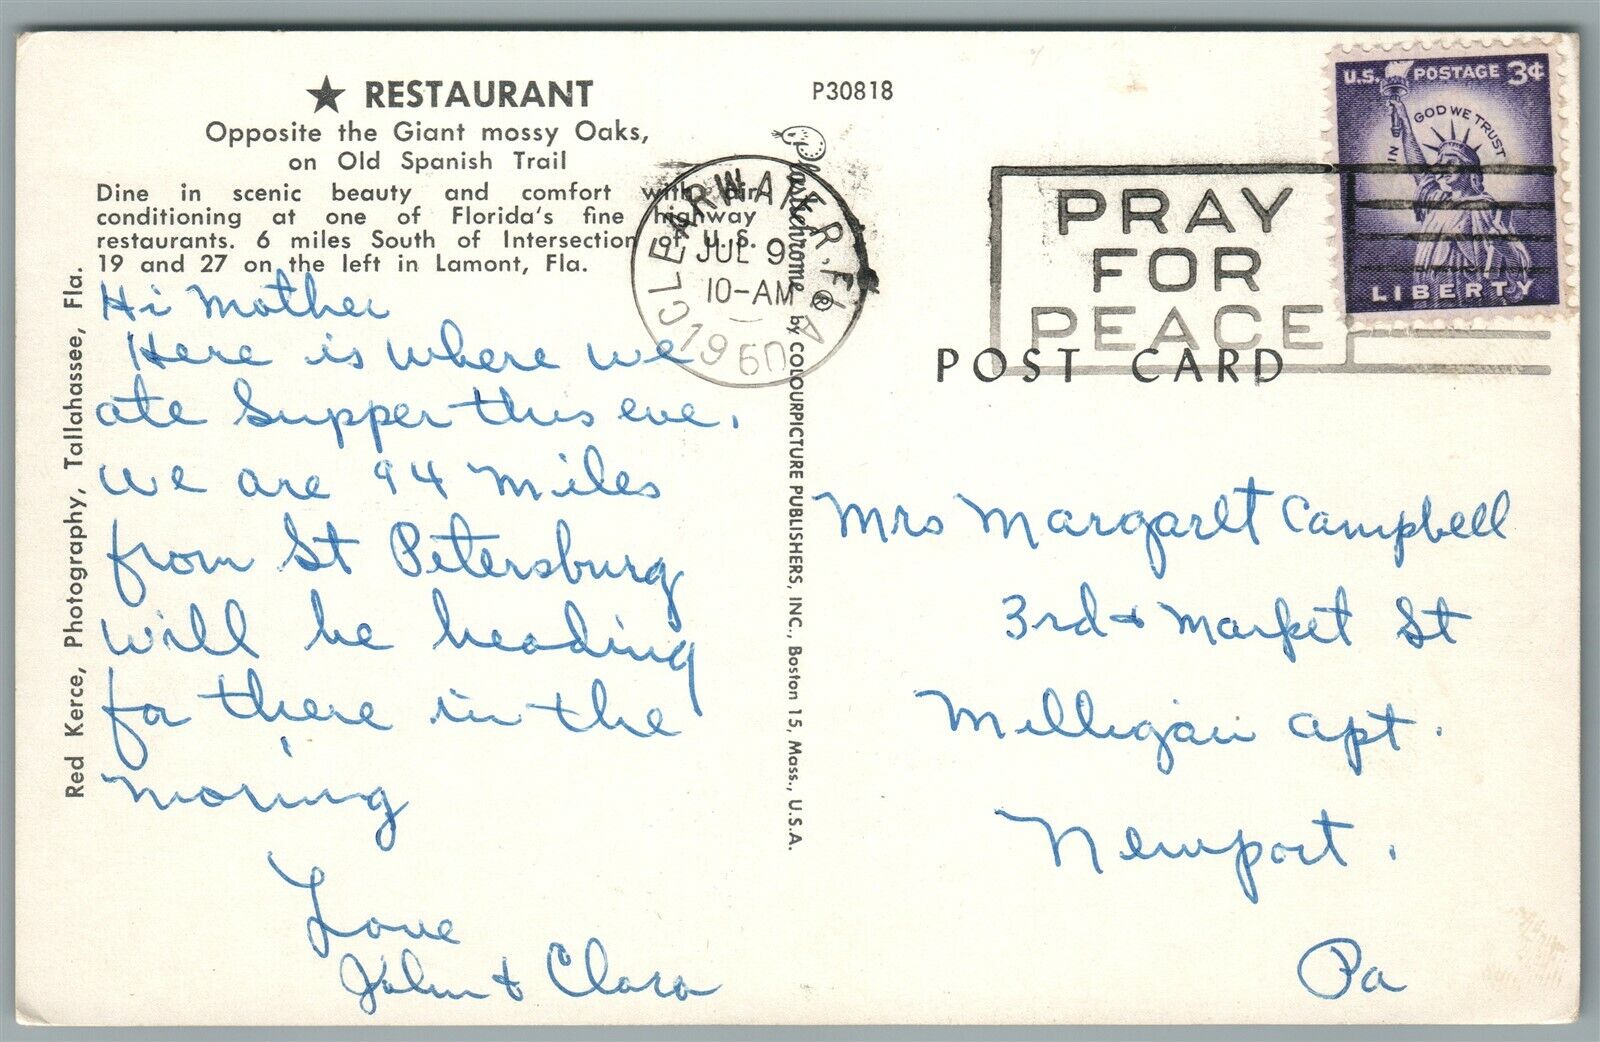 ★ RESTAURANT
Opposite the Giant mossy Oaks,
on Old Spanish Trail
Dine in scenic beauty and comfort with air
conditioning at one of Florida's fine highway
restaurants. 6 miles South of Intersection of U. S.
19 and 27 on the left in Lamont, Fla.
Hi Mother
Here is where we
ate supper this eve.
We are 94 miles
from St Petersburg
will be heading
for there in the
moring
Love
John & Clara
Red Kerce, Photography, Tallahassee, Fla.
P30818
Plastichrome ® by COLOURPICTURE PUBLISHERS, INC., Boston 15, Mass., U.S.A.
CLEARWATER, FLA
JUL 9
10-AM
1960
PRAY
FOR
PEACE
U.S. POSTAGE 3¢
IN GOD WE TRUST
LIBERTY
POST CARD
Mrs Margarett Campbell
3rd & Market St
Milligan apt.
Newport.
Pa